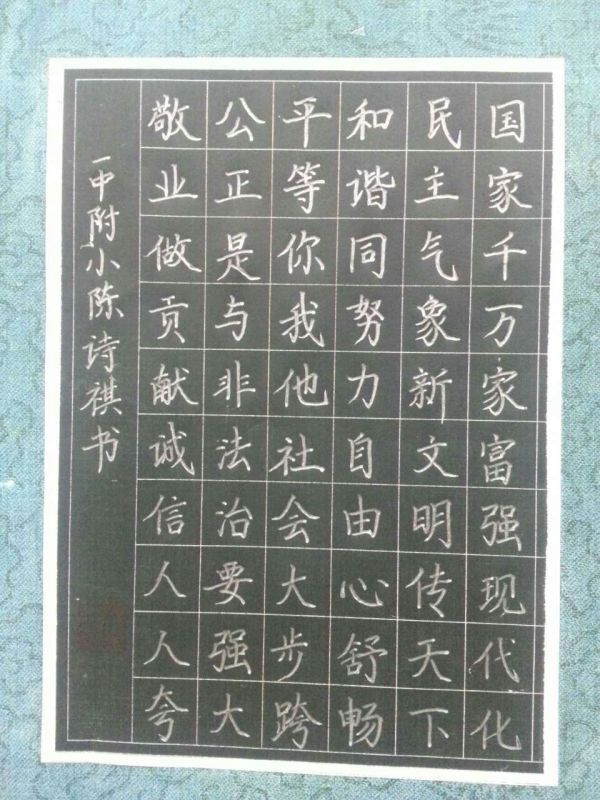 国家千万家富强现代化
民主气象新文明传天下
和谐同努力自由心舒畅
平等你我他社会大步跨
公正是与非法治要强大
敬业做贡献诚信人人夸
一中附小陈诗祺书